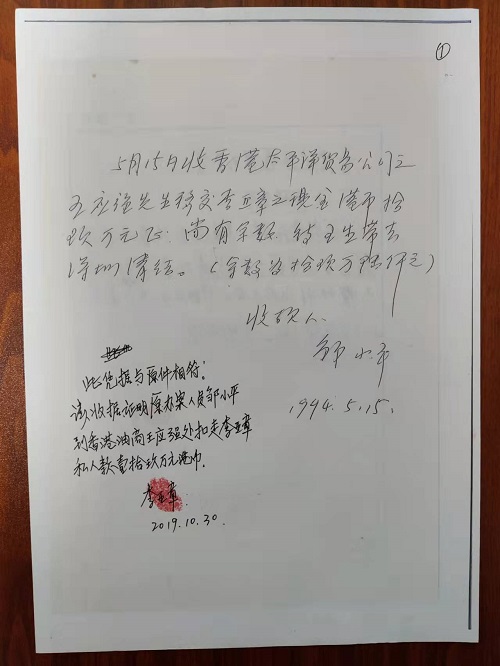 ①
5月15日收香港太平洋贸易公司王
应强先生移交李亚章之现金港币拾
玖万元正。尚有余数 待王生带去
深圳清结。(余数为拾玖万
收领人
邹小平
1994.5.15.
此凭据与原件相符:
该收据证明原办案人员邹小平
到香港油商王应强处扣走李亚章
私人款壹拾玖万元港币.
李亚章
2019.10.30.